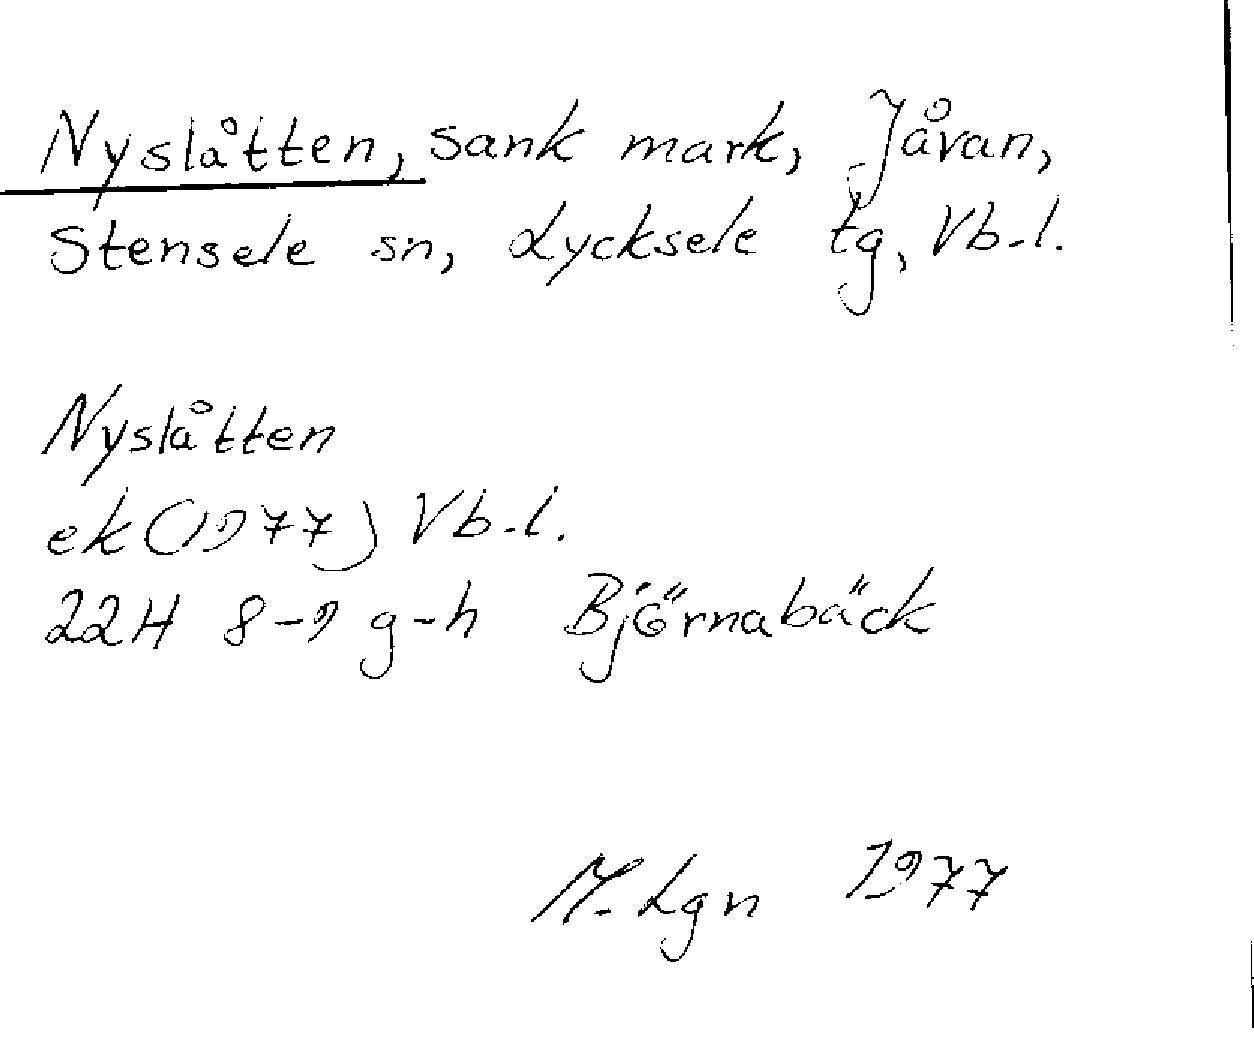 Nyslåtten, sank mark, Jåvan,
Stensele sn, Lycksele tg, Vb.l.
Nyslåtten
ek (1977) Vb.l.
22H 8-9 g-h Björnabäck
M. Lgn 1977